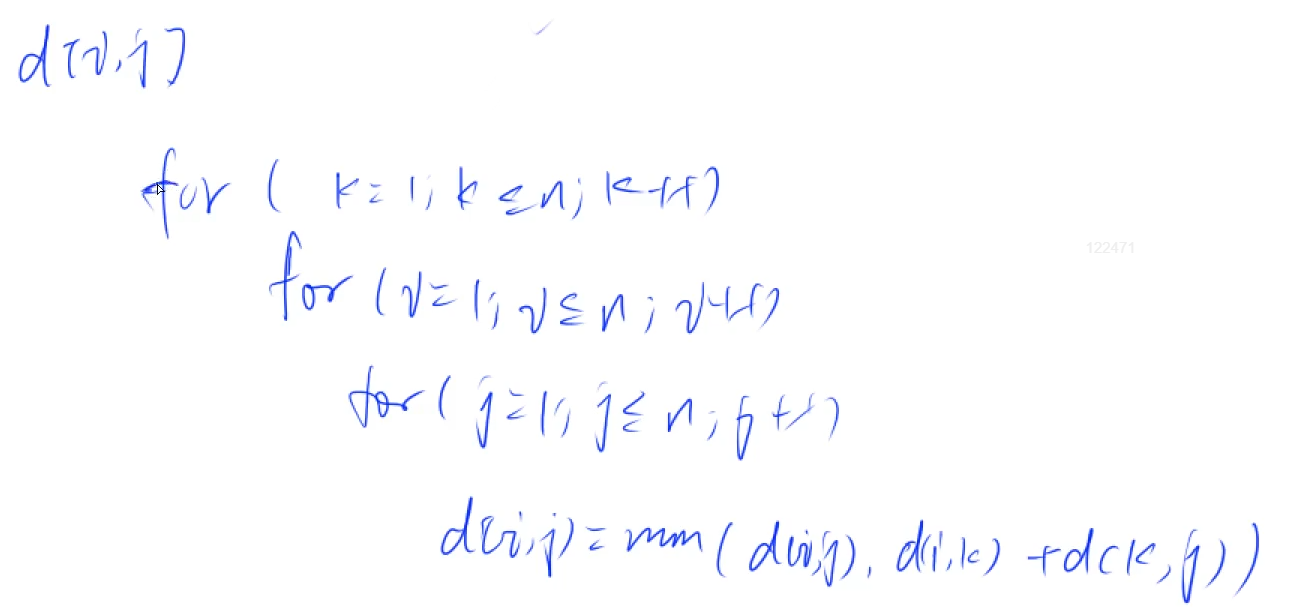 d[i,j]
for ( k=1; k≤n; k++)
122471
for (i=1; i≤n; i++)
for( j=1; j≤n; j++)
d(i,j)=min(d(i,j), d(i,k)+d(k,j))